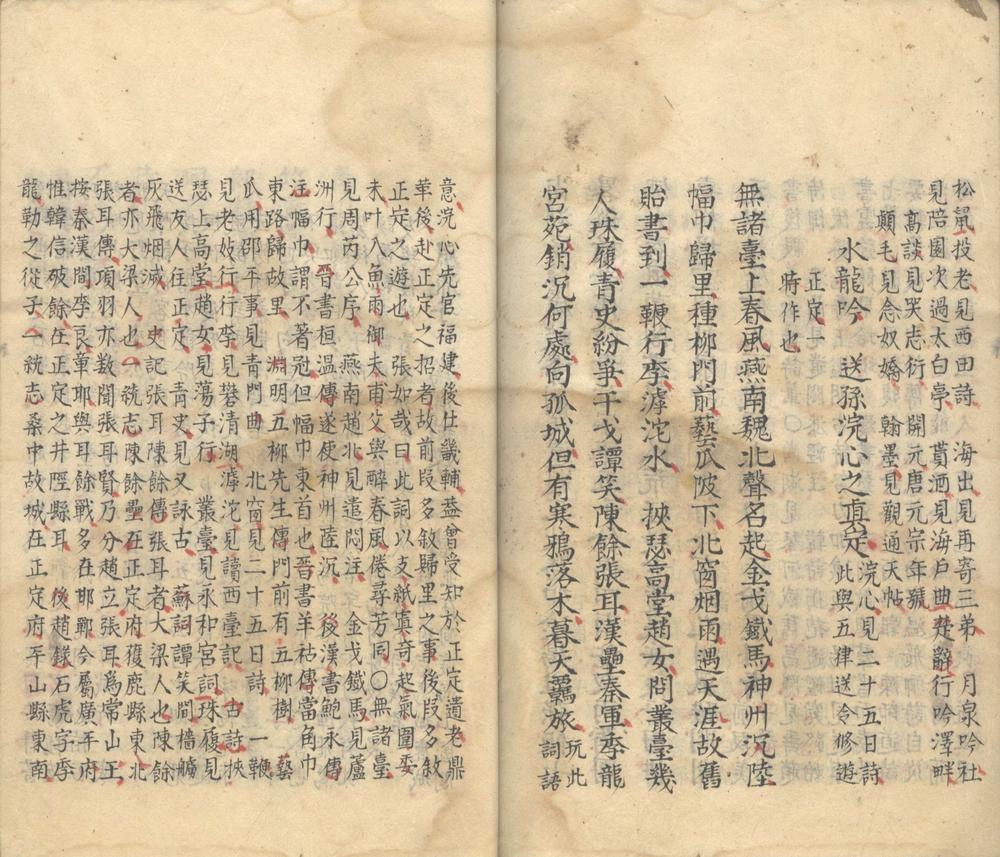 松鼠投老見西田詩　海出見再寄三弟　月泉吟社
見陪園次過太白亭　貰酒見海戶曲　楚辭行吟澤畔
高談見哭志衍　開元唐元宗年號
顛毛見念奴嬌　翰墨見觀通天帖
水龍吟　送孫浣心之真定　浣心見二十五日詩
此與五律送令修遊
正定一
時作也
無諸臺上春風燕南魏北聲名起金戈鐵馬神州沉陸
幅巾歸里種柳門前藝瓜陂下北窗烟雨遇天涯故舊
貽書到一鞭行李滹沱水　挾瑟高堂趙女問叢臺幾
人珠履青史紛爭干戈譚笑陳餘張耳漢壘秦軍季龍
宮苑銷沉何處向孤城但有寒鴉落木暮天羈旅　玩此
詞語
意浣心先官福建後仕畿輔葢曾受知於正定遺老鼎
革後赴正定之招者故前段多敘歸里之事後段多敘
正定之遊也　張如哉曰此詞以支紙寘奇起氣圍委
未叶八魚雨御夫甫父與醉春風倦尋芳同〇無諸臺
見周芮公序　燕南趙北見遣悶注　金戈鐵馬見蘆
洲行　晉書桓温傳遂使神州陸沉　後漢書鮑永傳
注幅巾謂不著冠但幅巾束首也晉書羊祜傳當角巾
東路歸故里　淵明五柳先生傳門前有五柳樹　藝
瓜用邵平事見青門曲　北窗見二十五日詩　一鞭
見老妓行　行李見礬清湖　滹沱見讀西臺記　古詩挾
瑟上高堂趙女見蕩子行　叢臺見永和宮詞　珠履見
送友人往正定　青史見又詠古　蘇詞譚笑間檣艣
灰飛烟滅　史記張耳陳餘傳張耳者大梁人也陳餘
者亦大梁人也　一統志陳餘壘在正定府獲鹿縣東北
張耳傳項羽亦數聞張耳賢乃分趙立張耳爲常山王
按秦漢間李良章邯與耳餘戰多在邯鄲今屬廣平府
惟韓信破餘在正定之井陘縣耳　後趙錄石虎字季
龍勒之從子一統志桑中故城在正定府平山縣東南